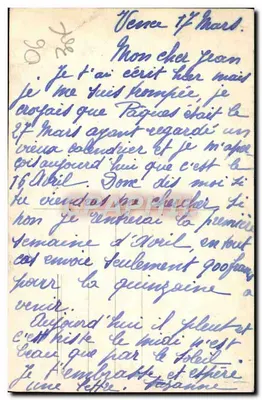 90
Vence 17 Mars.
Mon cher Jean
Je t'ai écrit hier mais
je me suis trompée je
croyais que Pâques était le
27 Mars ayant regardé un
vieux calendrier et je m'aper
çois aujourd'hui que c'est le
16 Avril Donc dis moi si
tu viendras me chercher si
non je rentrerai la première
semaine d'Avril, en tout
cas envoie seulement 900 francs
pour la quinzaine
à venir.
Aujourd'hui il pleut et
c'est triste le midi n'est
beau que par le soleil.
Je t'embrasse et espère
une lettre. Suzanne